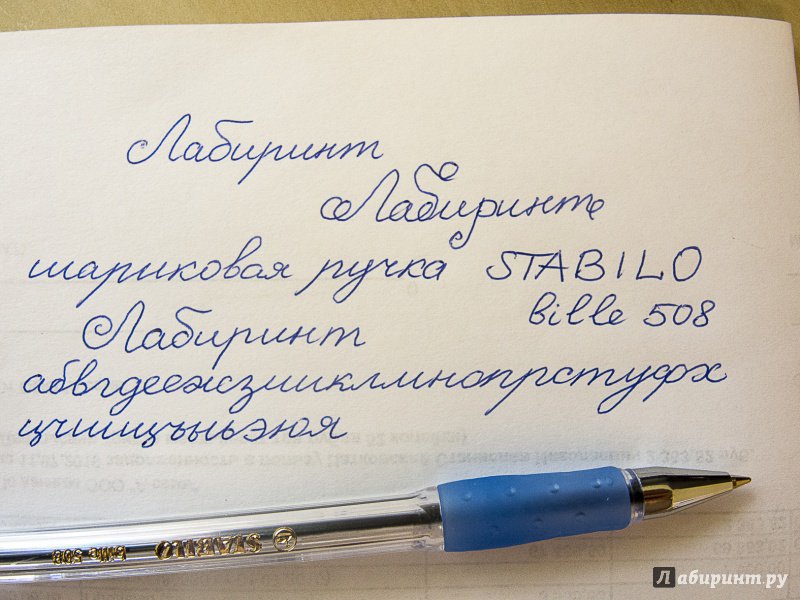 Лабиринт
Лабиринт
шариковая ручка STABILO
bille 508
Лабиринт
абвгдеежзииклмнопрстуфх
цчшщъыьэюя
STABILO bille 508
Лабиринт.ру